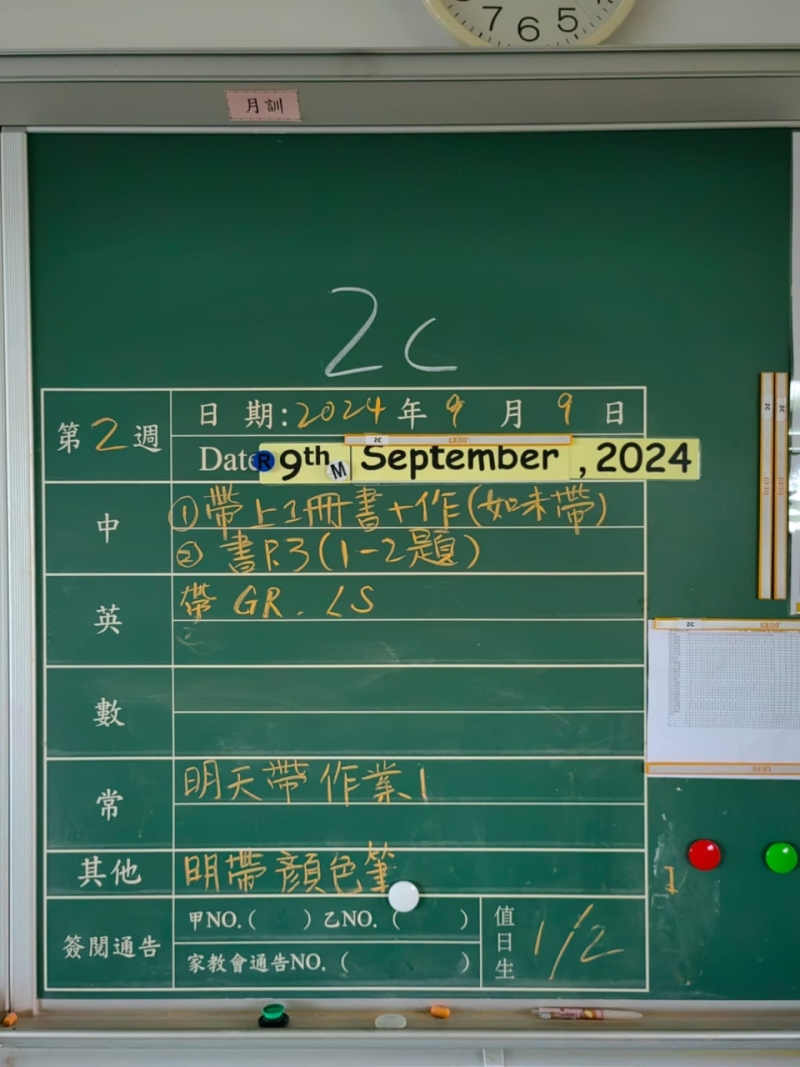 7 6 5
月訓
2C
第2週
日 期:2024年9月9日
Date R 9th M September , 2024
2C
中
①帶上1冊書+作(如未帶)
②書P.3(1-2題)
英
帶 GR. LS
2C
數
常
明天帶作業1
其他
明帶顏色筆
1
簽閱通告
甲NO.( ) 乙NO.( )
家教會通告NO. ( )
值日生
1/2